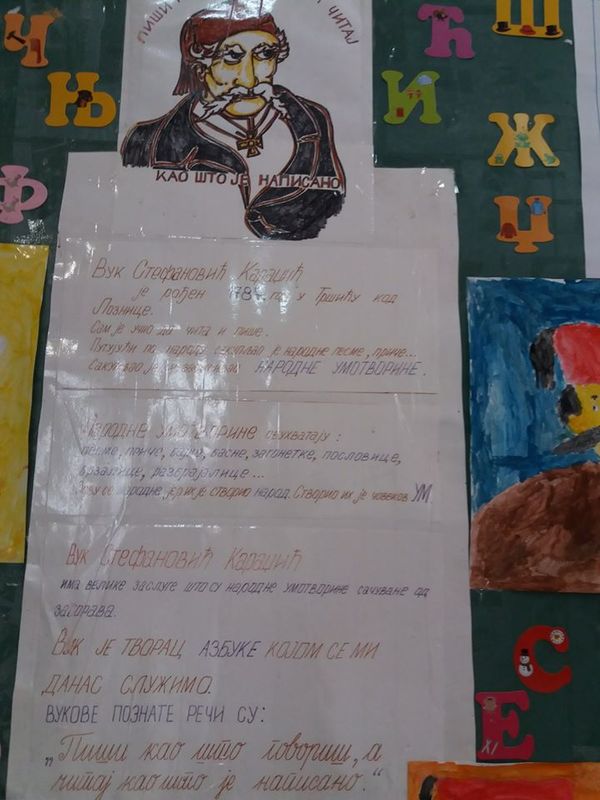 Ч
Њ
Ф
Ћ
Ш
И
Ж
Џ
С
Е
ПИШИ
ЧИТАЈ
КАО ШТО ЈЕ НАПИСАНО
Вук Стефановић Караџић
је рођен 1787. год у Тршићу код
Лознице.
Сам је учио да чита и пише.
Путујући по народу сакупљао је народне песме, приче...
НАРОДНЕ УМОТВОРИНЕ.
Народне умотворине обухватају:
песме, приче, бајке, басне, загонетке, пословице,
брзалице, разбрајалице...
Зову се народне јер их је створио народ. Створио их је човеков УМ
Вук Стефановић Караџић
има велике заслуге што су народне умотворине сачуване од
заборава.
ВУК ЈЕ ТВОРАЦ АЗБУКЕ КОЈОМ СЕ МИ
ДАНАС СЛУЖИМО.
ВУКОВЕ ПОЗНАТЕ РЕЧИ СУ:
„Пиши као што говориш, а
читај као што је написано.“